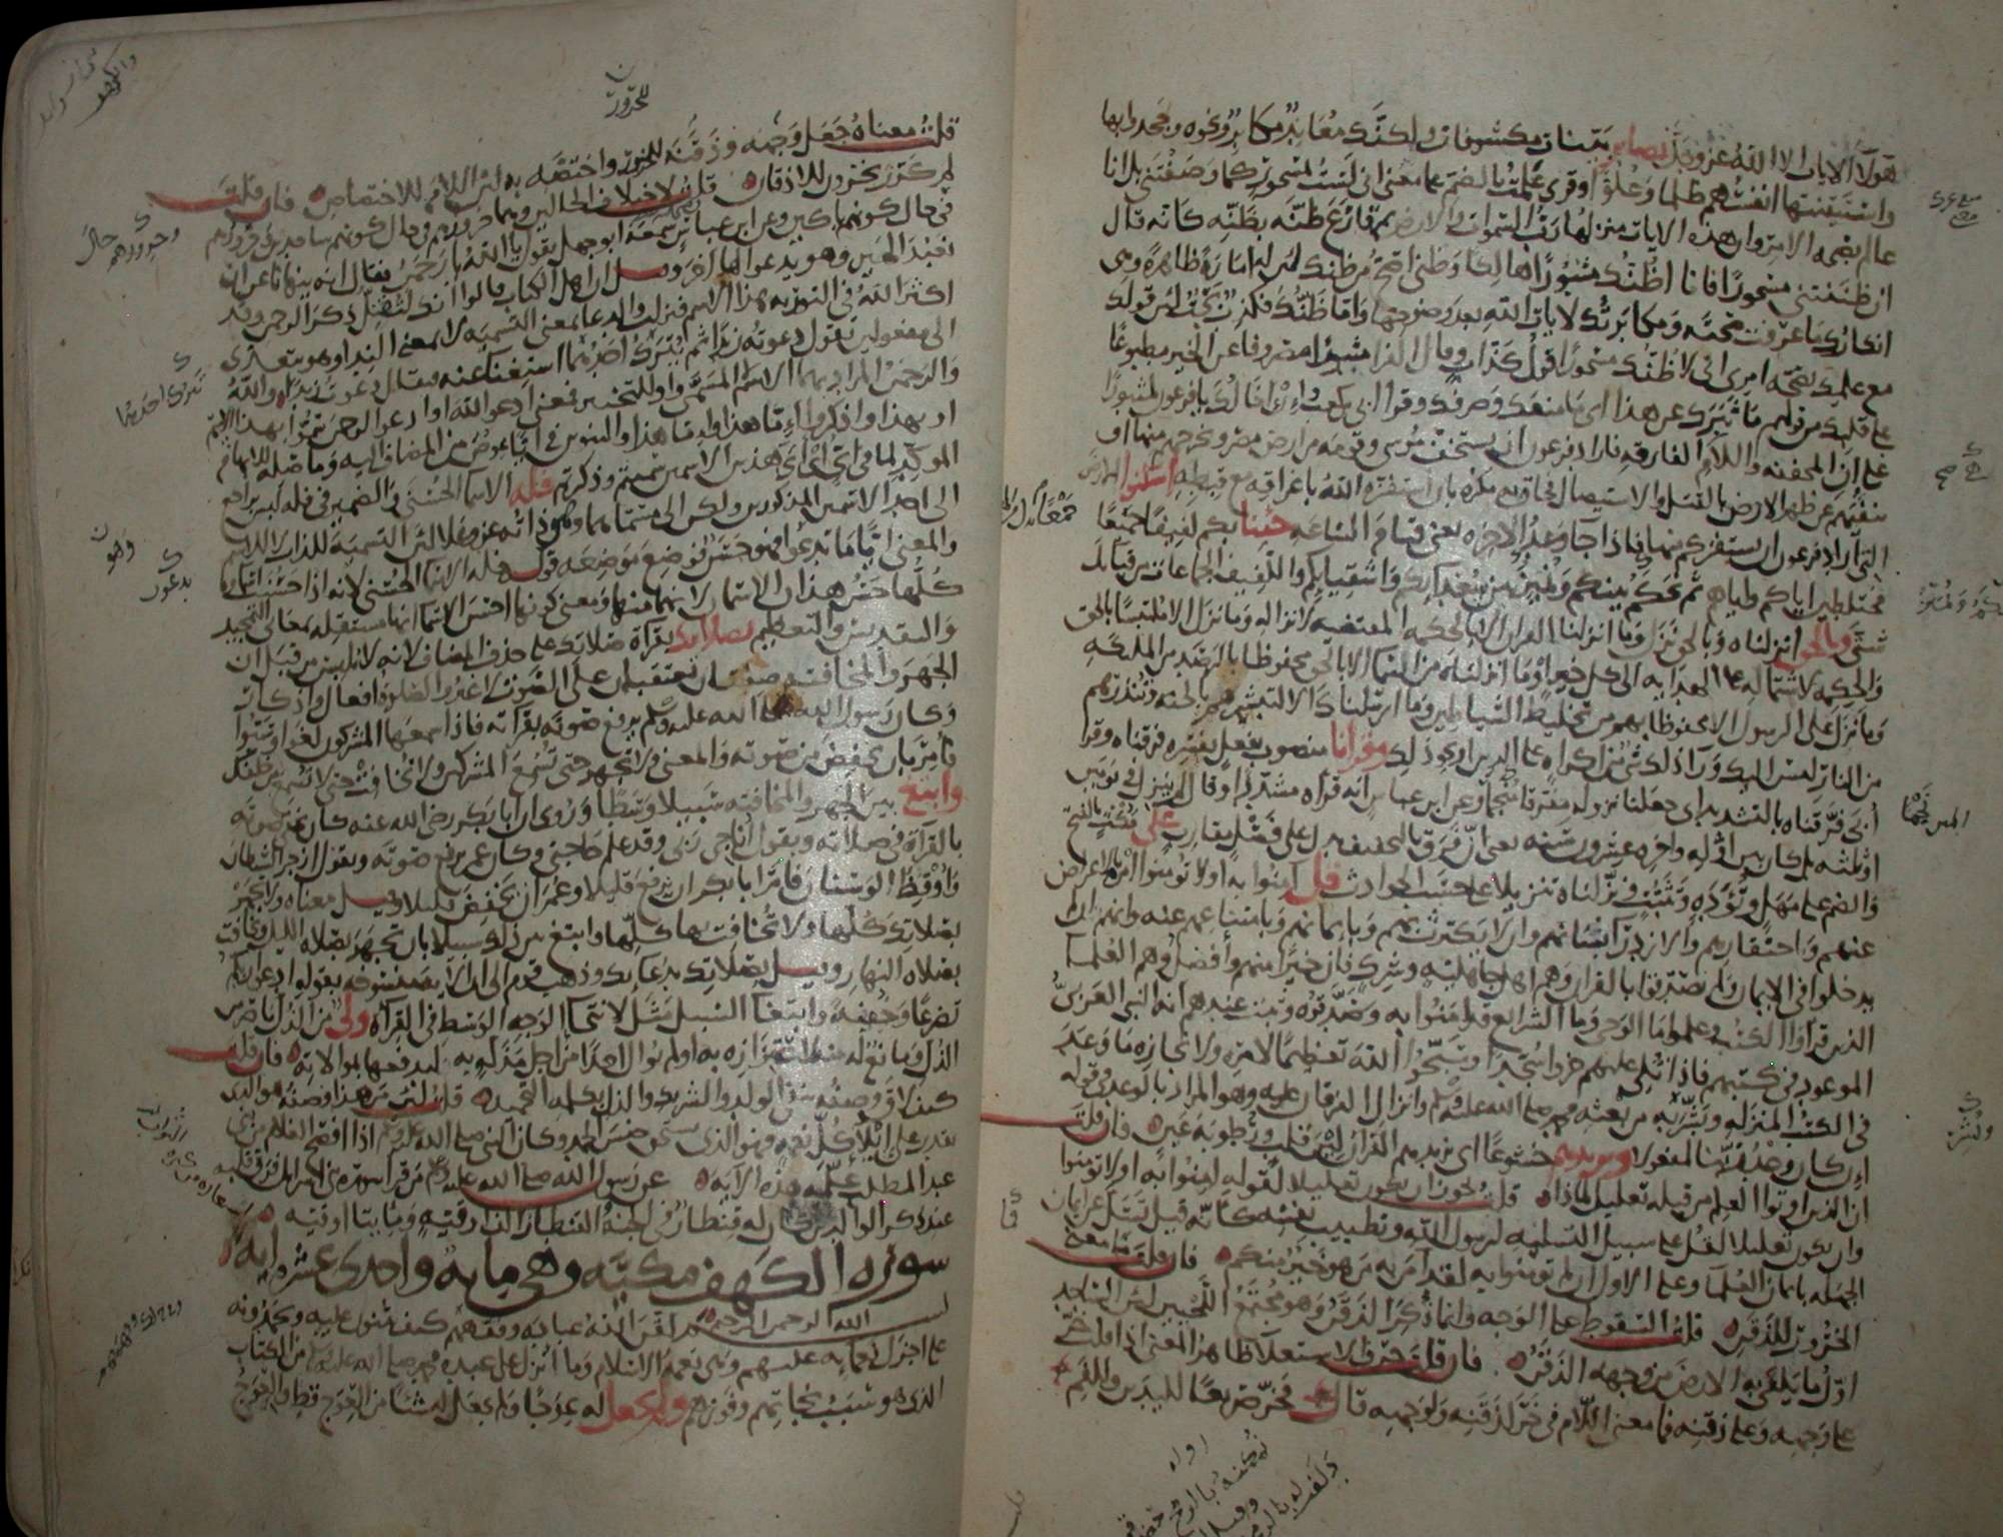 هولاء الايات الا الله عز وجل بصاير بينات مكشوفات ولكنك معاند مكابر ونحوه وجحدوا بها
واستيقنتها انفسهم ظلما وعلوا وقرئ علمت بالضم على معنى انى لست بمسحور كما وصفتنى بل انا
عالم بصحه الامر وان هذه الايات منزلها رب السموات والارض ثم قارع ظنه بظنه كانه قال
ان ظننتنى مسحورا فانا اظنك مثبورا هالكا وظنى اصح من ظنك لان له امارة ظاهرة وهى
انكارك ما عرفت صحته ومكابرتك لايات الله بعد وضوحها واما ظنك فكذب بحت لان قولك
مع علمك بصحه امرى انى لاظنك مسحورا قول كذاب وقال الفراء مثبورا مصروفا عن الخير مطبوعا
على قلبك من قولهم ما ثبرك عن هذا اى ما منعك وصرفك وقرأ ابى بن كعب وان اخالك يا فرعون لمثبورا
على ان المخففه واللام الفارقه فاراد فرعون ان يستخف موسى وقومه من ارض مصر ويخرجهم منها او
ينفيهم عن ظهر الارض بالقتل والاستيصال فحاق به مكره بان استفزه الله باغراقه مع قبطه اسكنوا الارض
التى اراد فرعون ان يستفزكم منها فاذا جا وعد الاخره يعنى قيام الساعه جئنا بكم لفيفا جميعا
مختلطين اياكم واياهم ثم نحكم بينكم ونميز بين سعدائكم واشقيائكم واللفيف الجماعات من قبائل
شتى وبالحق انزلناه وبالحق نزل وما انزلنا القرآن الا بالحكمه المقتضيه لانزاله وما نزل الا ملتبسا بالحق
والحكمه لاشتماله على الهدايه الى كل خير او وما انزلناه من السما الا بالحق محفوظا بالرصد من الملئكه
وما نزل على الرسول الا محفوظا بهم من تخليط الشياطين وما ارسلناك الا لتبشرهم بالجنه وتنذرهم
من النار ليس اليك وراء ذلك شئ من اكراه على الدين او نحو ذلك وقرانا منصوب بفعل يفسره فرقناه وقرأ
ابى فرقناه بالتشديد اى جعلنا نزوله مفرقا منجما وعن ابن عباس انه قرأه مشددا وقال لم ينزل فى يومين
او ثلثه بل كان بين اوله واخره عشرون سنه يعنى ان فرق بالتخفيف يدل على فصل متقارب على مكث بالفتح
والضم على مهل وتؤده وتثبت ونزلناه تنزيلا على حسب الحوادث قل آمنوا به او لا تؤمنوا امر بالاعراض
عنهم واحتقارهم والازدراء بشانهم وان لا يكترث بهم وبايمانهم وبامتناعهم عنه وانهم ان لم
يدخلوا فى الايمان ولم يصدقوا بالقران وهم اهل جاهليه وشرك فان خيرا منهم وافضل وهم العلماء
الذين قرأوا الكتب وعلموا ما الوحى وما الشرايع قد امنوا به وصدقوه وثبت عندهم انه النبى العربى
الموعود فى كتبهم فاذا تلى عليهم خروا سجدا وسبحوا الله تعظيما لامره ولانجازه ما وعد
فى الكتب المنزله وبشر به من بعثه محمد صلى الله عليه وسلم وانزال القرآن عليه وهو المراد بالوعد فى قوله
ان كان وعد ربنا لمفعولا ويزيدهم خشوعا اى يزيدهم القرآن لين قلب ورطوبة عين فان قلت
ان الذين اوتوا العلم من قبله تعليل لماذا قلت يجوز ان يكون تعليلا لقوله آمنوا به او لا تومنوا
وان يكون تعليلا لقل على سبيل التسليه لرسول الله وتطييب نفسه كانه قيل تسل عن ايمان
الجهله بايمان العلما وعلى الاول ان لم تومنوا به لقد آمن به من هو خير منكم فان قلت ما معنى
الخرور للذقن قلت السقوط على الوجه وانما ذكر الذقن وهو مجتمع اللحيين لان الساجد
اول ما يلقى به الارض من وجهه الذقن فان قلت حرف الاستعلا ظاهر المعنى اذا قلت خر
على وجهه وعلى ذقنه فما معنى اللام فى خر لذقنه ولوجهه قال فخر صريعا لليدين وللفم
قلت معناه جعل وجهه وذقنه للخرور واختصه به لان اللام للاختصاص فان قلت
لم كرر يخرون للاذقان قلت لاختلاف الحالين وهما خرورهم فى حال كونهم ساجدين وخرورهم
فى حال كونهم باكين وعن ابن عباس سمعه ابو جهل يقول يا الله يا رحمن فقال انه ينهانا ان
نعبد الهين وهو يدعو الها اخر وقيل ان اهل الكتاب قالوا انك لتقل ذكر الرحمن وقد
اكثر الله فى التوريه هذا الاسم فنزلت والدعا بمعنى التسميه لا بمعنى الندا وهو يتعدى
الى مفعولين تقول دعوته زيدا ثم يترك احدهما استغناء عنه فيقال دعوت زيدا والله
والرحمن المراد بهما الاسم لا المسمى واو للتخيير فمعنى ادعوا الله او ادعوا الرحمن سموا بهذا الاسم
او بهذا واذكروا اما هذا واما هذا والتنوين فى ايا عوض من المضاف اليه وما صله للابهام
الموكد لما فى اى اى هذين الاسمين سميتم وذكرتم فله الاسما الحسنى والضمير فى فله ليس براجع
الى احد الاسمين المذكورين ولكن الى مسماهما وهو ذاته عز وعلا لان التسميه للذات لا للاسم
والمعنى ايا ما تدعوا فهو حسن فوضع موضعه قوله فله الاسما الحسنى لانه اذا حسنت اسماوه
كلها حسن هذان الاسمان لانهما منها ومعنى كونها احسن الاسما انها مستقله بمعانى التمجيد
والتقديس والتعظيم بصلاتك بقراءة صلاتك على حذف المضاف لانه لا يلبس من قبل ان
الجهر والمخافته صفتان تعتقبان على الصوت لا غير والصلوة افعال واذكار
وكان رسول الله صلى الله عليه وسلم يرفع صوته بقراته فاذا سمعها المشركون لغوا وسبوا
فامر بان يخفض من صوته والمعنى ولا تجهر حتى تسمع المشركين ولا تخافت حتى لا تسمع من خلفك
وابتغ بين الجهر والمخافته سبيلا وسطا وروى ان ابا بكر رضى الله عنه كان يخفى صوته
بالقرآة فى صلاته ويقول اناجى ربى وقد علم حاجتى وكان عمر يرفع صوته ويقول ازجر الشيطان
واوقظ الوسنان فامر ابا بكر ان يرفع قليلا وعمر ان يخفض قليلا وقيل معناه ولا تجهر
بصلاتك كلها ولا تخافت بها كلها وابتغ بين ذلك سبيلا بان تجهر بصلاه الليل وتخافت
بصلاه النهار وقيل بصلاتك بدعائك وذهب قوم الى ان الايه منسوخه بقوله ادعوا ربكم
تضرعا وخفية وابتغا السبيل مثل لانتحا الوجه الوسط فى القرآة ولى من الذل ناصر من
الذل ومانع له منه لاعتزازه به او لم يوال احدا من اجل مذله به ليدفعها بموالاته فان قلت
كيف لاق وصفه بنفى الولد والشريك والذل بكلمه التحميد قلت لان من هذا وصفه هو الذى
يقدر على ايلاء كل نعمه فهو الذى يستحق جنس الحمد وكان النبى صلى الله عليه وسلم اذا افصح الغلام من بنى
عبد المطلب علمه هذه الآيه عن رسول الله صلى الله عليه وسلم من قرا سوره بنى اسرائل فرق قلبه
عند ذكر الوالدين كان له قنطار فى الجنة والقنطار الف اوقيه ومايتا اوقيه
سوره الكهف مكيه وهى مايه واحدى عشره ايه
بسم الله الرحمن الرحيم لقن الله عباده وفقههم كيف يثنون عليه ويحمدونه
على اجزل نعمايه عليهم وهى نعمة الاسلام وما انزل على عبده محمد صلى الله عليه وسلم من الكتاب
الذى هو سبب نجاتهم وفوزهم ولم يجعل له عوجا ولم يجعل له شيئا من العوج قط والعوج